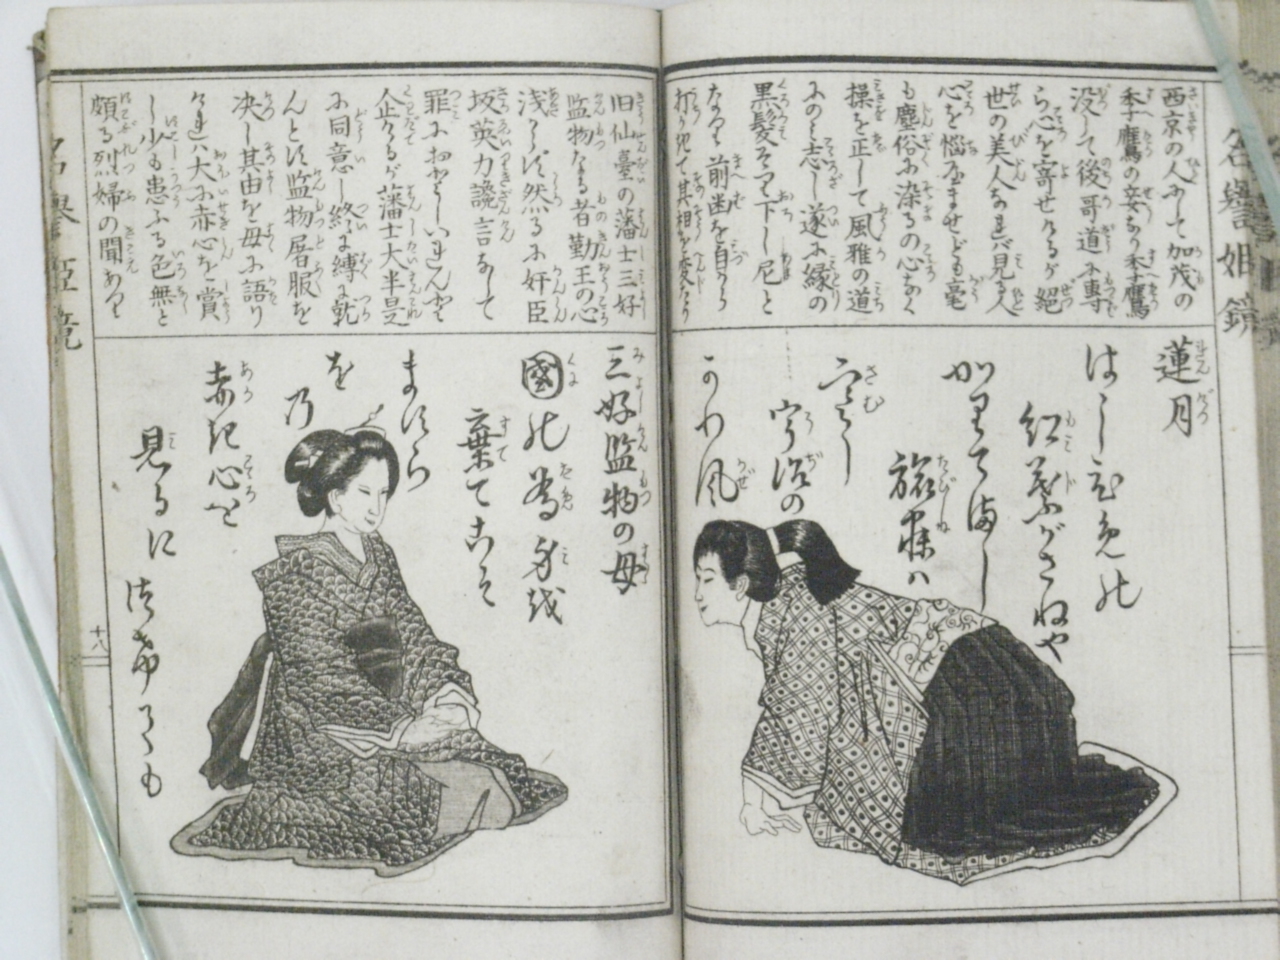 名譽姐鏡
西京の人にて加茂の
季鷹の妾なり季鷹
没して後哥道に専
ら心を寄せけるが絶
世の美人なれバ見る人
心を悩なませども毫
も塵俗に染るの心なく
操を正して風雅の道
にのミ志し遂に縁の
黒髪そり下し尼と
なり前歯を自から
打ち欠て其相を変たり
蓮月
はらひ兎の
紅葉がさねや
かりてほし
旅寐ハ
寒し
宇治の
かわ風
旧仙臺の藩士三好
監物なる者勤王の心
浅からず然るに奸臣
坂英力讒言なして
罪におとしいれんと
企けるが藩士大半是
に同意し終に縛に就
んとす監物屠服を
决し其由を母に語り
けれバ大に赤心を賞
し少も患ふる色無と
頗る烈婦の聞あり
三好監物の母
國の為身を
棄てこそ
ますら
を乃
赤き心を
見るに
つけても
十八